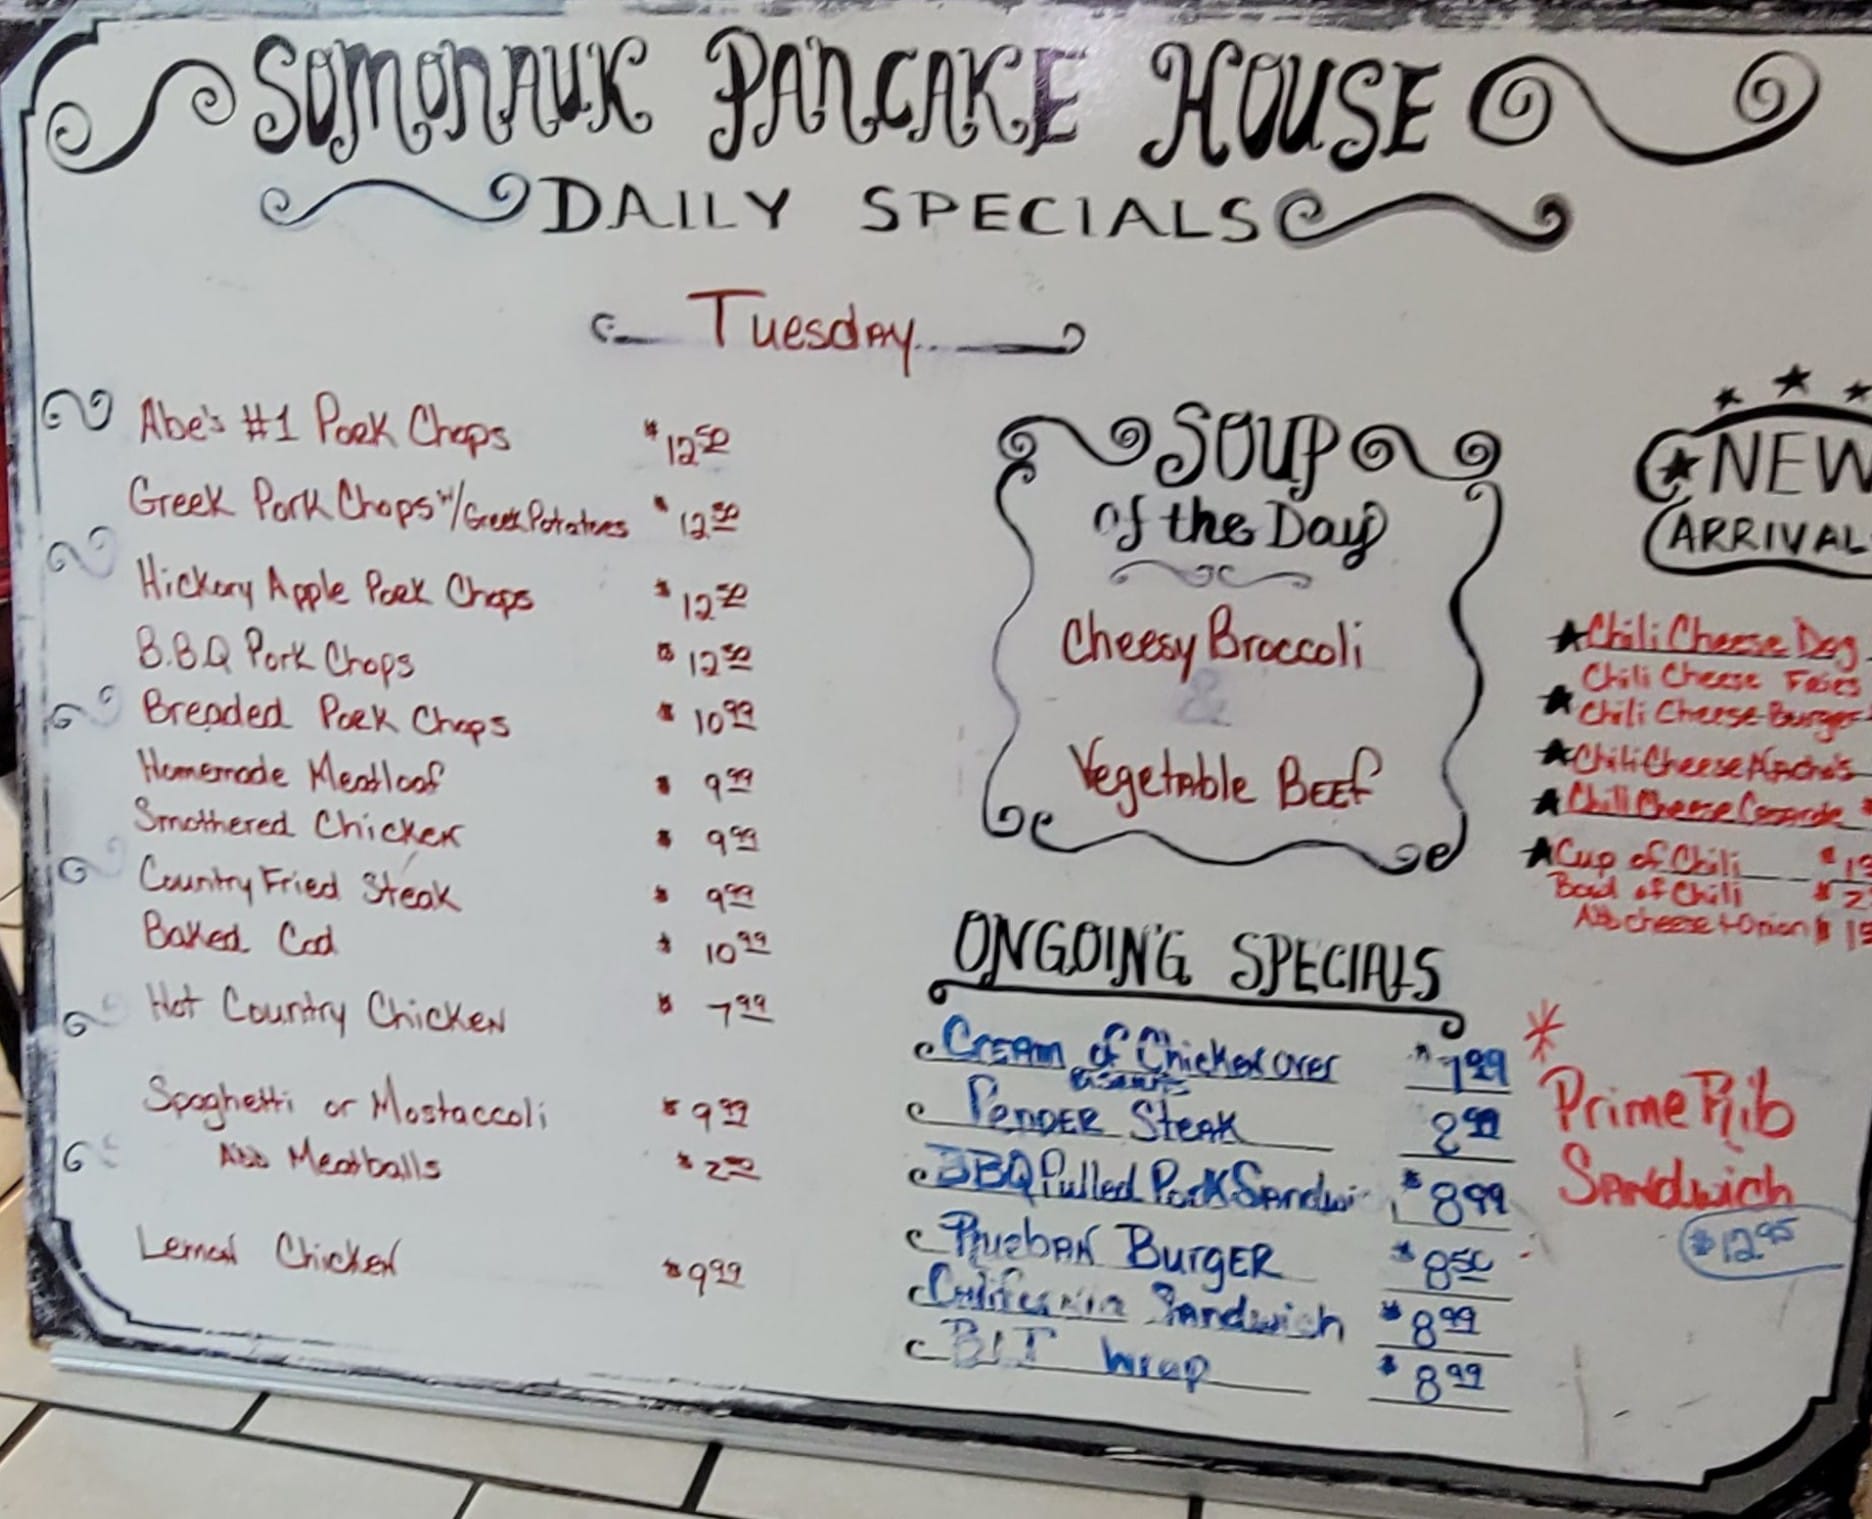 SOMONAUK PANCAKE HOUSE
DAILY SPECIALS
Tuesday
Abe's #1 Pork Chops $12.50
Greek Pork Chops w/Greek Potatoes $12.50
Hickory Apple Pork Chops $12.50
B.B.Q Pork Chops $12.50
Breaded Pork Chops $10.99
Homemade Meatloaf $9.99
Smothered Chicken $9.99
Country Fried Steak $9.99
Baked Cod $10.99
Hot Country Chicken $7.99
Spaghetti or Mostaccoli $9.99
ADD Meatballs $2.50
Lemon Chicken $9.99
SOUP
of the Day
Cheesy Broccoli
&
Vegetable BEEF
ONGOING SPECIALS
CREAM of Chicken over $7.99
Biscuits
STEAK
BBQ Pulled Pork Sandwi $8.99
BURGER $8.50
California Sandwich $8.99
BLT Wrap $8.99
NEW
ARRIVAL
Chili Cheese Dog
Chili Cheese Fries
Chili Cheese Burger
Chili Cheese Nacho's
Chili Cheese
Cup of Chili
Bowl of Chili
ADD cheese + Onion
Prime Rib
SANDwich
$12.95